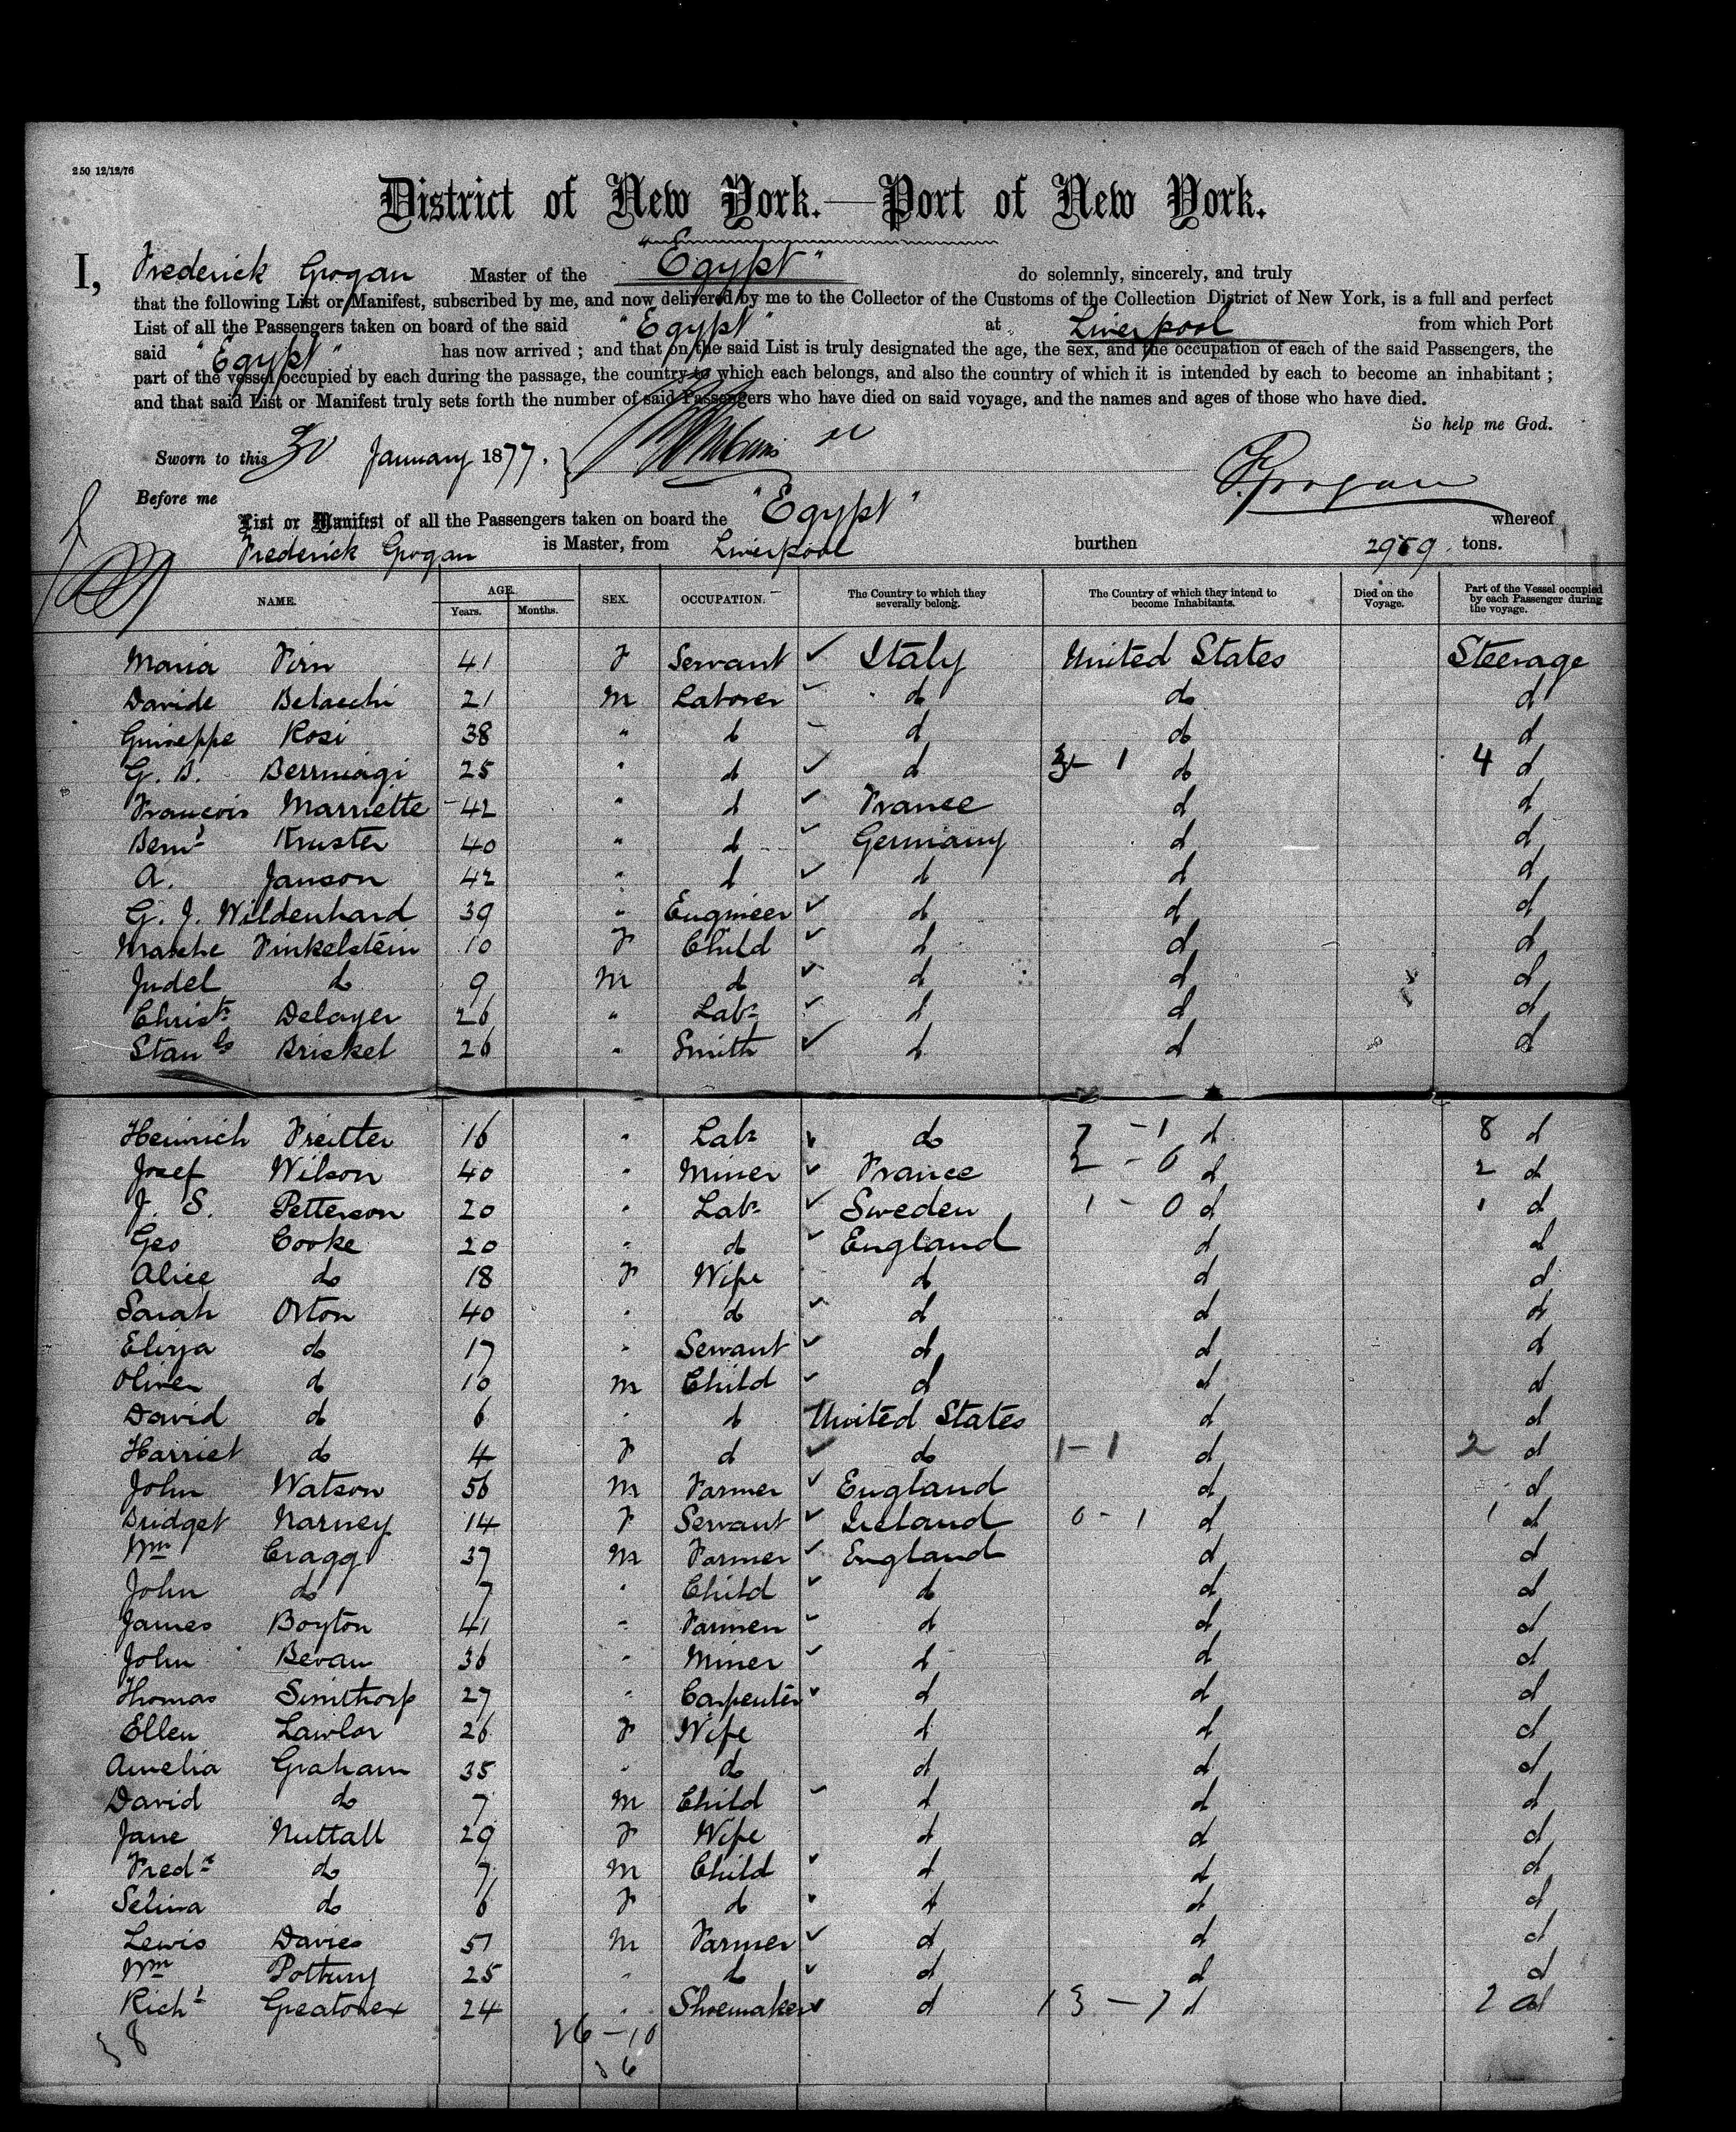 250 12/12/76
District of New York.—Port of New York.
I, Frederick Grogan Master of the "Egypt" do solemnly, sincerely, and truly
that the following List or Manifest, subscribed by me, and now delivered by me to the Collector of the Customs of the Collection District of New York, is a full and perfect
List of all the Passengers taken on board of the said "Egypt" at Liverpool from which Port
said "Egypt" has now arrived ; and that on the said List is truly designated the age, the sex, and the occupation of each of the said Passengers, the
part of the vessel occupied by each during the passage, the country to which each belongs, and also the country of which it is intended by each to become an inhabitant ;
and that said List or Manifest truly sets forth the number of said Passengers who have died on said voyage, and the names and ages of those who have died.
So help me God.
Sworn to this 30 January 1877.
F. Grogan
Before me
List or Manifest of all the Passengers taken on board the "Egypt" whereof
Frederick Grogan is Master, from Liverpool burthen 2959 tons.
NAME. AGE. Years. Months. SEX. OCCUPATION. The Country to which they severally belong. The Country of which they intend to become Inhabitants. Died on the Voyage. Part of the Vessel occupied by each Passenger during the voyage.
Maria Firn 41 F Servant Italy United States Steerage
Davide Belaechi 21 M Laborer d do d
Guiseppe Rosi 38 " d d do d
G. B. Berrmagi 25 " d d 3 - 1 d 4 d
Francois Marriette 42 " d France d d
Kruster 40 " d Germany d d
A. Janson 42 " d d d d
G. J. Wildenhard 39 " Engineer d d d
Mashe Finkelstein 10 F Child d d d
Judel do 9 M d d d d
Christn Delayer 26 " Labr d d d
Stan Briskel 26 " Smith d d d
Heinrich Freitter 16 " Labr do 7 - 1 d 8 d
Josef Wilson 40 " Miner France 2 - 0 d 2 d
J. S. Petterson 20 " Labr Sweden 1 - 0 d 1 d
Geo Cooke 20 " d England d d
Alice do 18 F Wife d d d
Sarah Orton 40 " d d d d
Eliza do 17 " Servant d d d
Oliver d 10 M Child d d d
David d 6 " d United States d d
Harriet do 4 F d do 1 - 1 d 2 d
John Watson 56 M Farmer England d d
Bridget Narney 14 F Servant Ireland 0 - 1 d 1 d
Wm Cragg 37 M Farmer England d d
John do 7 " Child d d d
James Boyton 41 " Farmer d d d
John Bevan 36 " Miner d d d
Thomas Simthorp 27 " Carpenter d d d
Ellen Lawlor 26 F Wife d d d
Amelia Graham 35 " do d d d
David do 7 M Child d d d
Jane Nuttall 29 F Wife d d d
Fredk do 7 M Child d d d
Selina do 6 F d d d d
Lewis Davies 51 M Farmer d d d
Wm Potbury 25 " d d d d
Richd Greatorex 24 " Shoemaker d 13 - 7 d 20 d
38 26 - 10
36